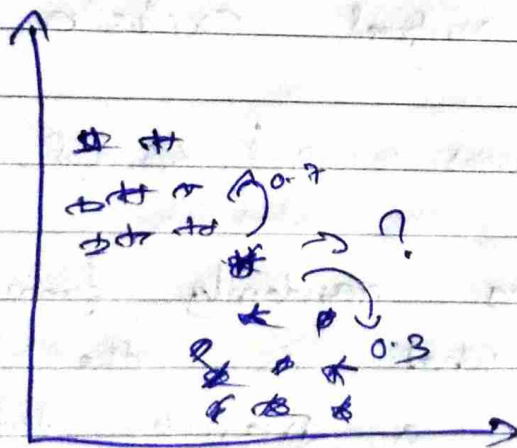 0.7
?
0.3